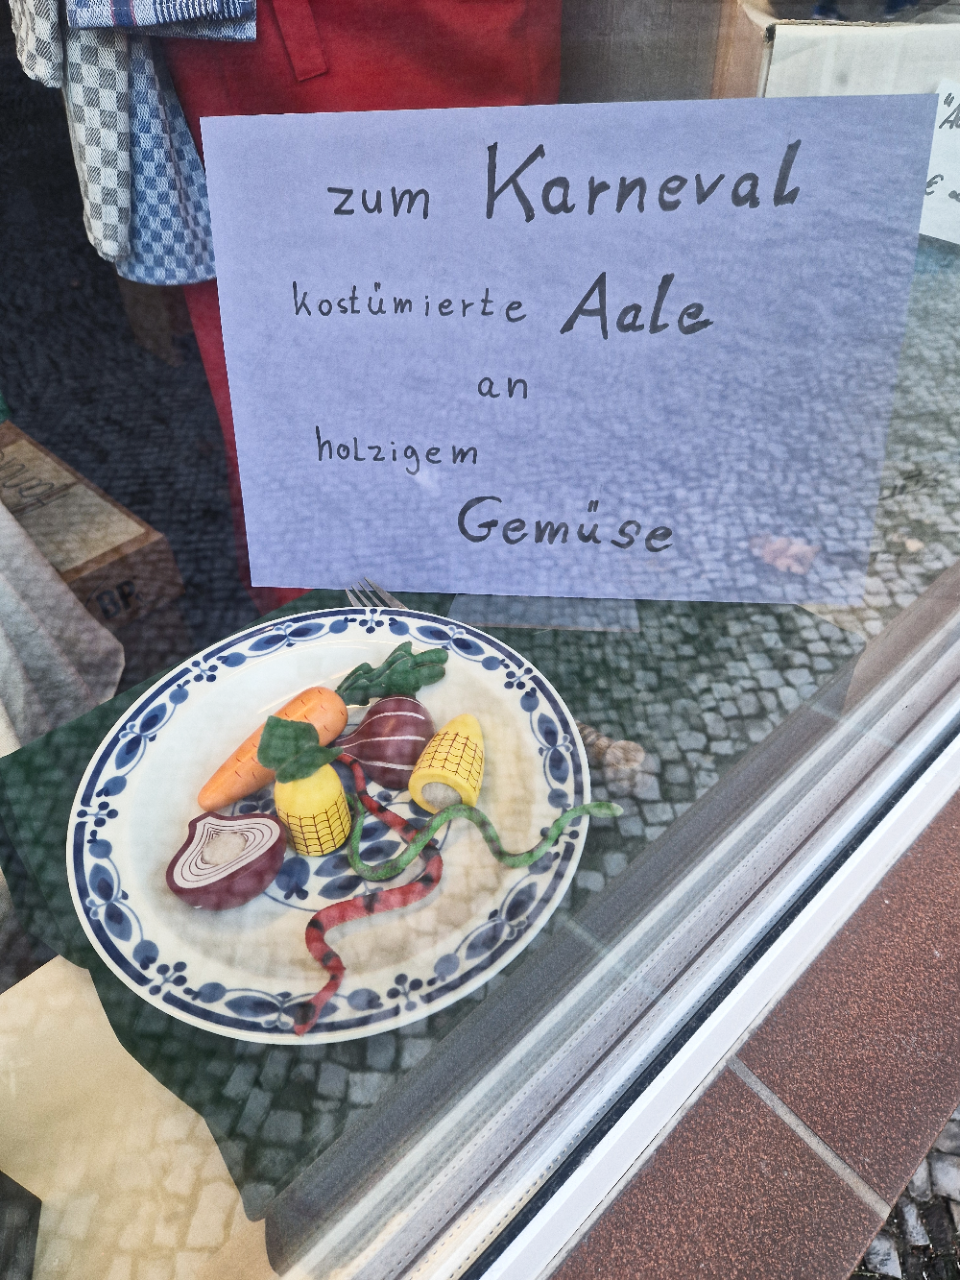 zum Karneval
kostümierte Aale
an
holzigem
Gemüse